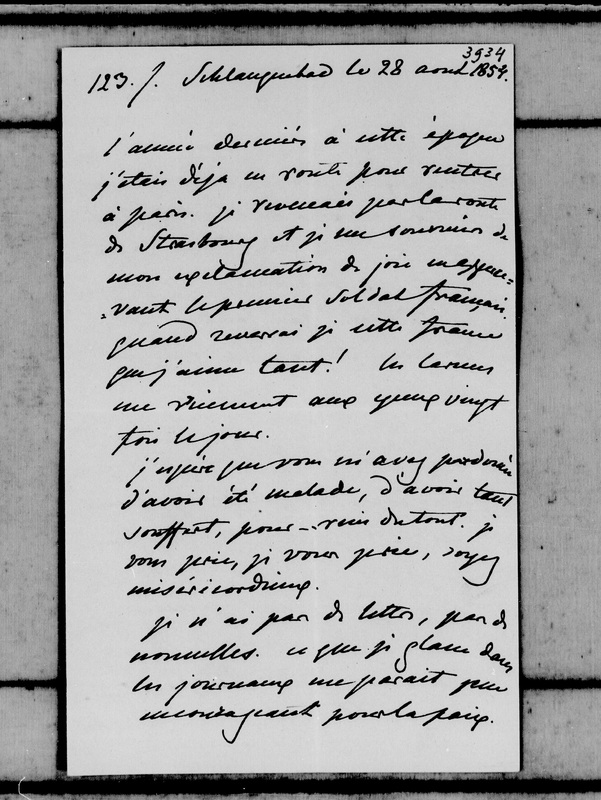 3934
123. /. Schlangenbad le 28 aout 1854.
l'année dernière à cette époque
j'étais déja en route pour rentrer
à paris. je revenais par la route
de Strasbourg et je me souviens de
mon exclamation de joie en apperce=
=vant le premier soldat français.
quand reverrai je cette france
que j'aime tant! les larmes
me viennent aux yeux vingt
fois le jour.
j'espère que vous m'avez pardonné
d'avoir été malade, d'avoir tant
souffert, pour - rien du tout. je
vous prie, je vous prie, soyez
miséricordieux.
je n'ai pas de lettre, pas de
nouvelles. ce que je glane dans
les journaux me parait peu
encourageant pour la paix.